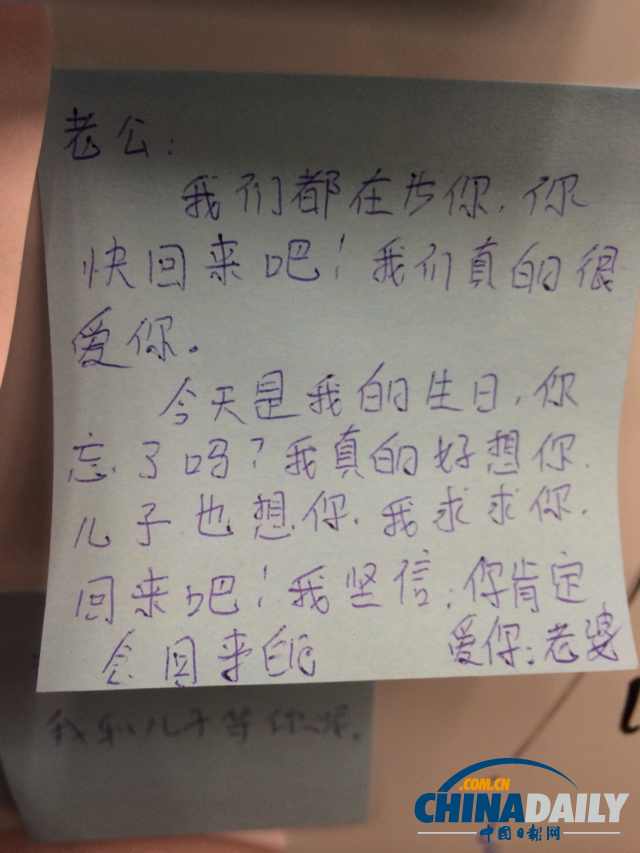 老公：
我们都在为你，你
快回来吧！我们真的很
爱你。
今天是我的生日，你
忘了吗？我真的好想你，
儿子也想你，我求求你，
回来吧！我坚信，你肯定
会回来的
爱你：老婆
我和儿子等你
.COM.CN
CHINADAILY
中国日报网